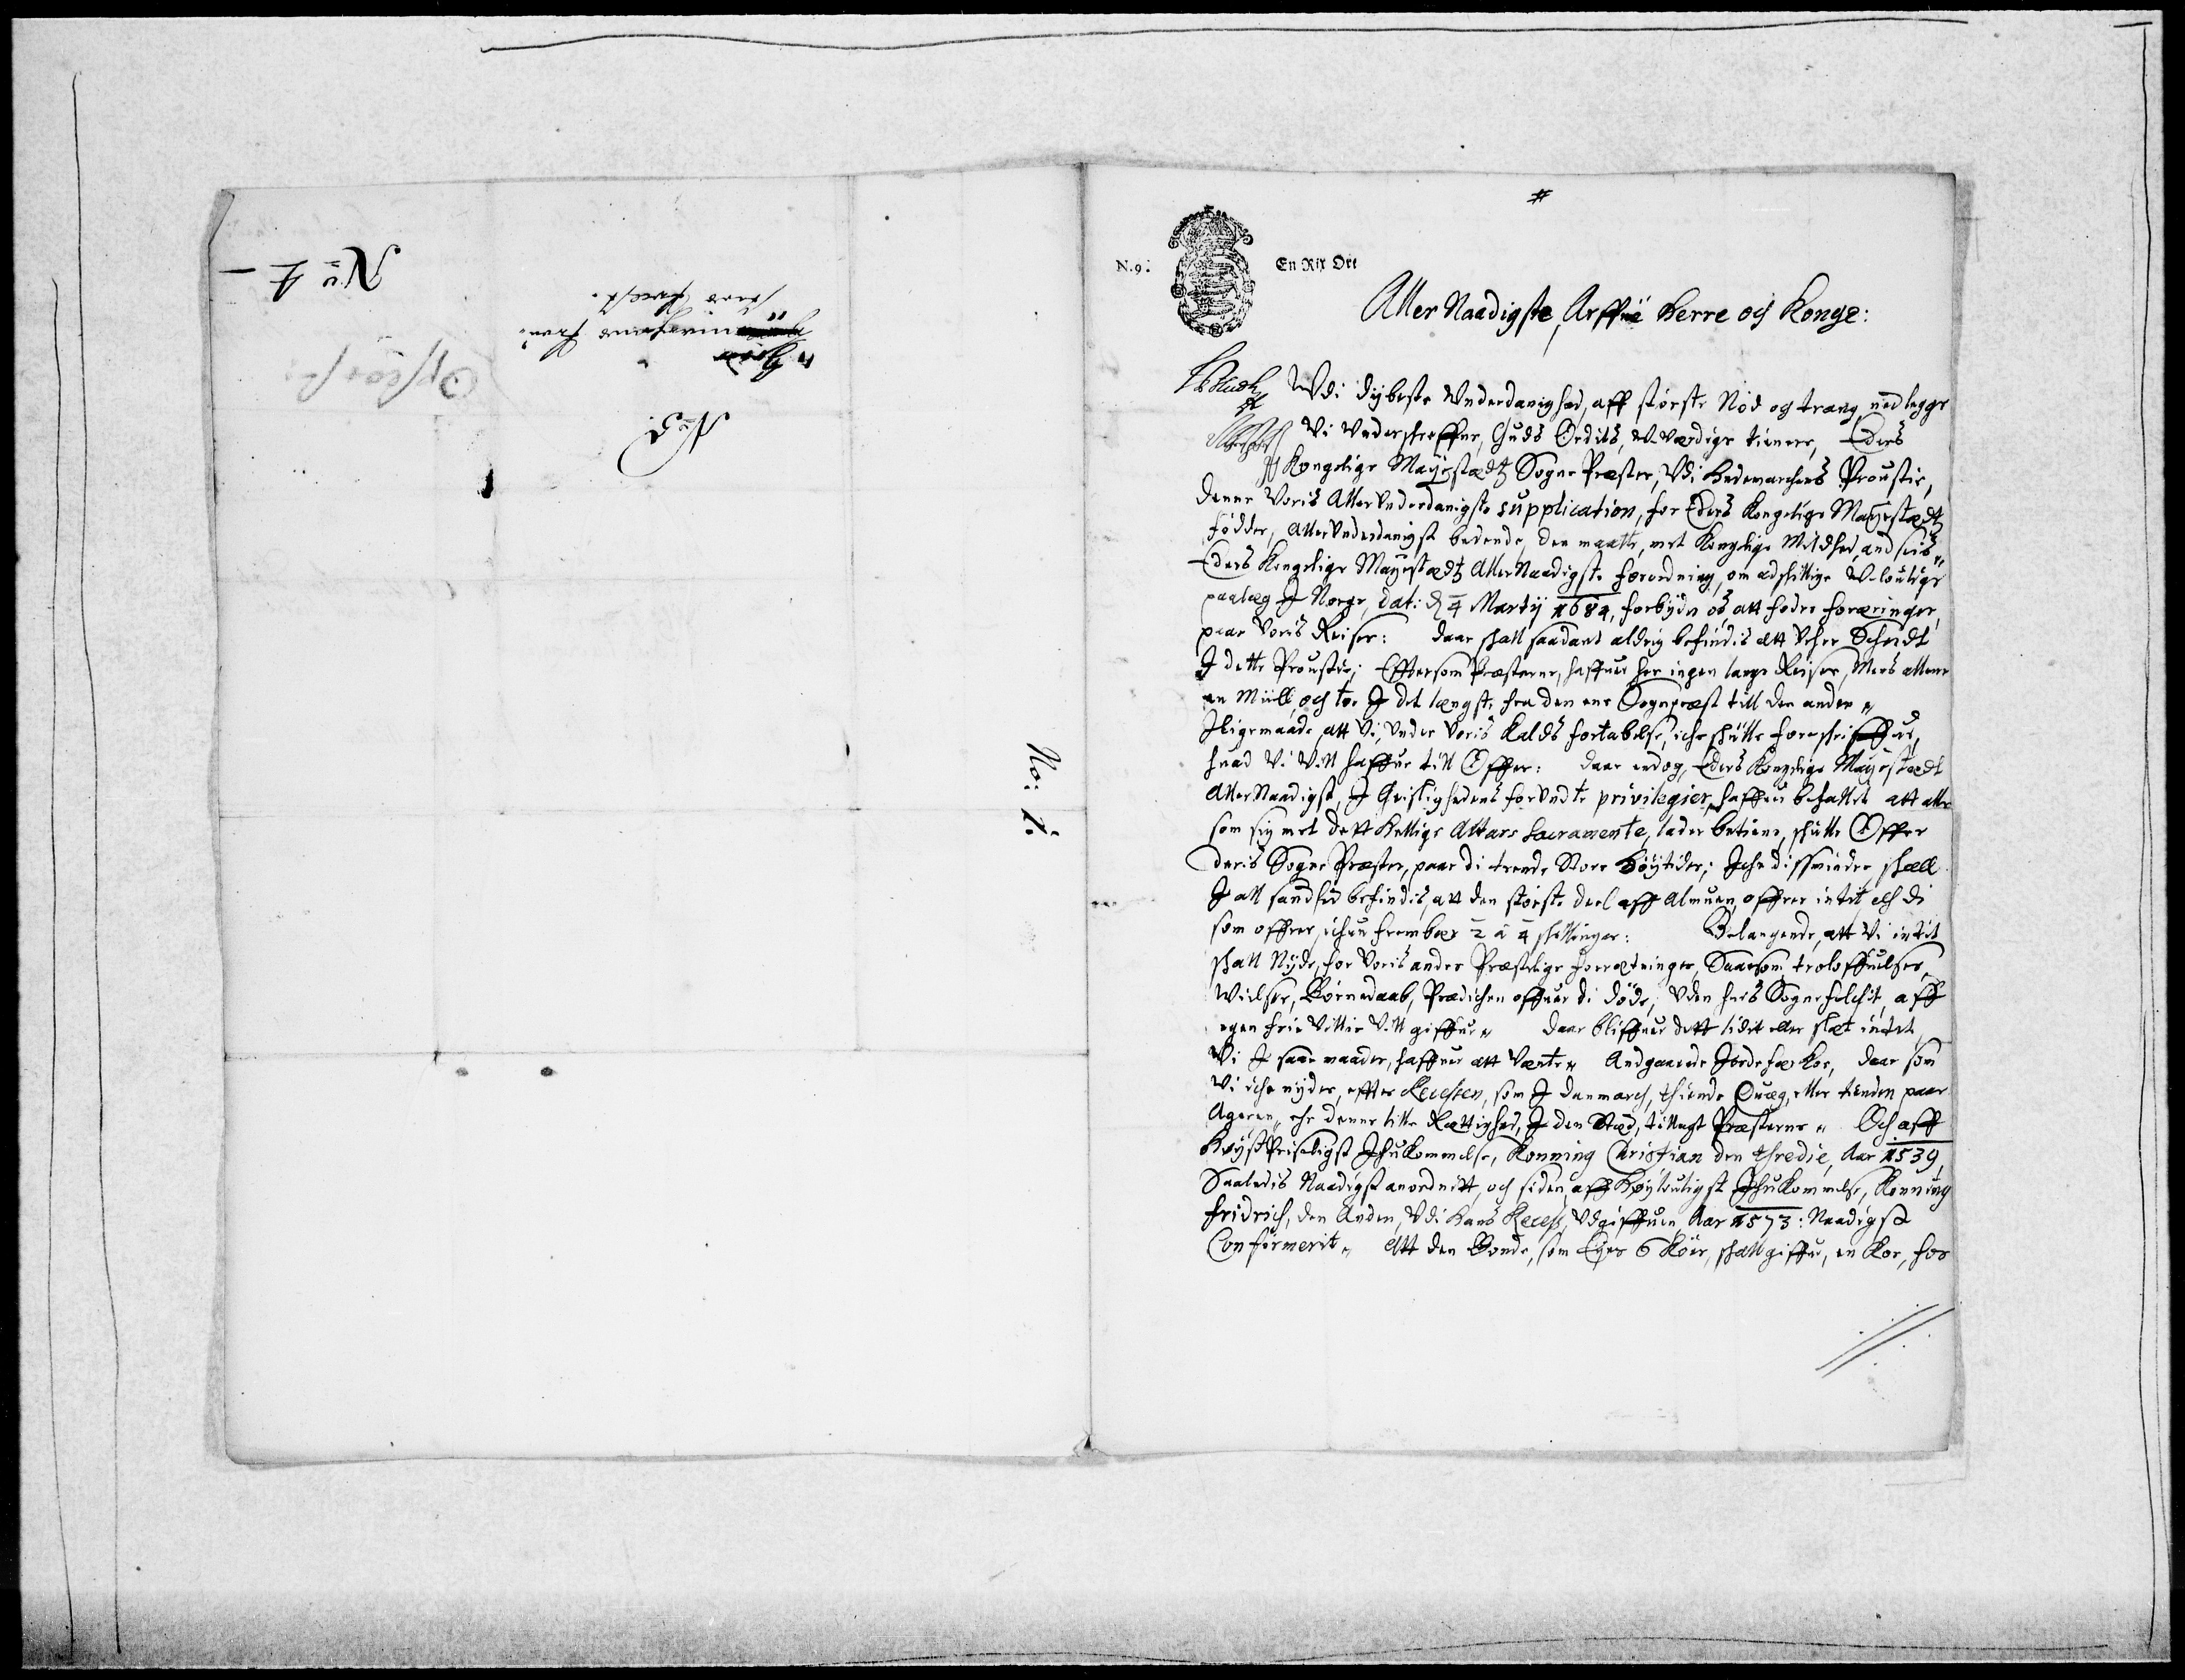 N.9.
En Rix Ort
Aller Naadigste, Arffue Herre och Konge:
Wdi dybeste Vnderdanighed, aff største Nød og trang, nedlegge
Vi Vnderschreffne, Guds Ordits, V-værdige tienere, Eders
Kongelige Mayestædtz Sogne Præster, Vdi Hedemarchens Proustie,
denne Voris AllerVnderdanigste supplication, for Eders Kongelige Mayestædtz
fødder, AllerVnderdanigst bedende, den maatte, met Kongelige Mildhed, andseis„
Eders Kongelige Mayestædtz AllerNaadigste forordning, om adskillige V-loulige
paalæg J Norge, dat: d 4 Martij 1684, forbyder os, att fodre foræringer,
paae Voris Reiser: daae shall saadant aldrig befindis att Vehre Scheedt
J dette Proustie; Efftersom Præsterne, haffuer her ingen lange Reiser, Mens allene
en Miill, och to J det længste fra den ene Sognepræst till den anden„
Jligemaade, att Vi, Vnder Voris Kalds fortabelse, iche schulle foreschriffue,
huad Vi Vill haffue till Offer: daae endog, Eders Kongelige Mayestædt
AllerNaadigst, J Geistlighedens forVndte privilegier, haffuer befallet att alle
som sig met dett Hellige Altars Sacramente, lader betiene, schulle Offre
deris Sogne Præster, paae di trende Store Høytider; Iche dissmindre, shall
J all sandhed befindis, att den største deel aff Almuen, offrer intet, och di
som offrer, ichun frembær 2 â 4 schellinger: Belangende, att Vi intet
shall Nyde, for Voris andre Præstelige forretninger, Saasom, troloffuelser,
Wielser, Børnedaab, Prædichen offuer di døde, Vden hues Sognefolchit, aff
egen frie Villie Vill giffue„ daae bliffuer dett lidet eller slæt intet,
Vi J saae maader, haffuer att Vænte„ Andgaaende Jordefær Koe, daae som
Vi iche nyder, effter Recessen, som J danmarch, thiende Quæg, eller tienden paae
Ageren, ehr denne lille Rættighed, J den Stæd, tillagt Præsterne„ Och aff
Høyst Priseligst Jhukommelse, Konning Christian den thredie, Aar 1539,
Saaledis Naadigst anordnitt, och siden aff Høyloulligst Jhukommelse, Konning
fridrich, den Anden, Vdi Hans Recess, Vdgiffuen Aar 1573: Naadigst
Confirmerit„ Att den Bonde, som Eyer 6 Kiør, shall giffue, en Koe, for
No: 1.
No 4